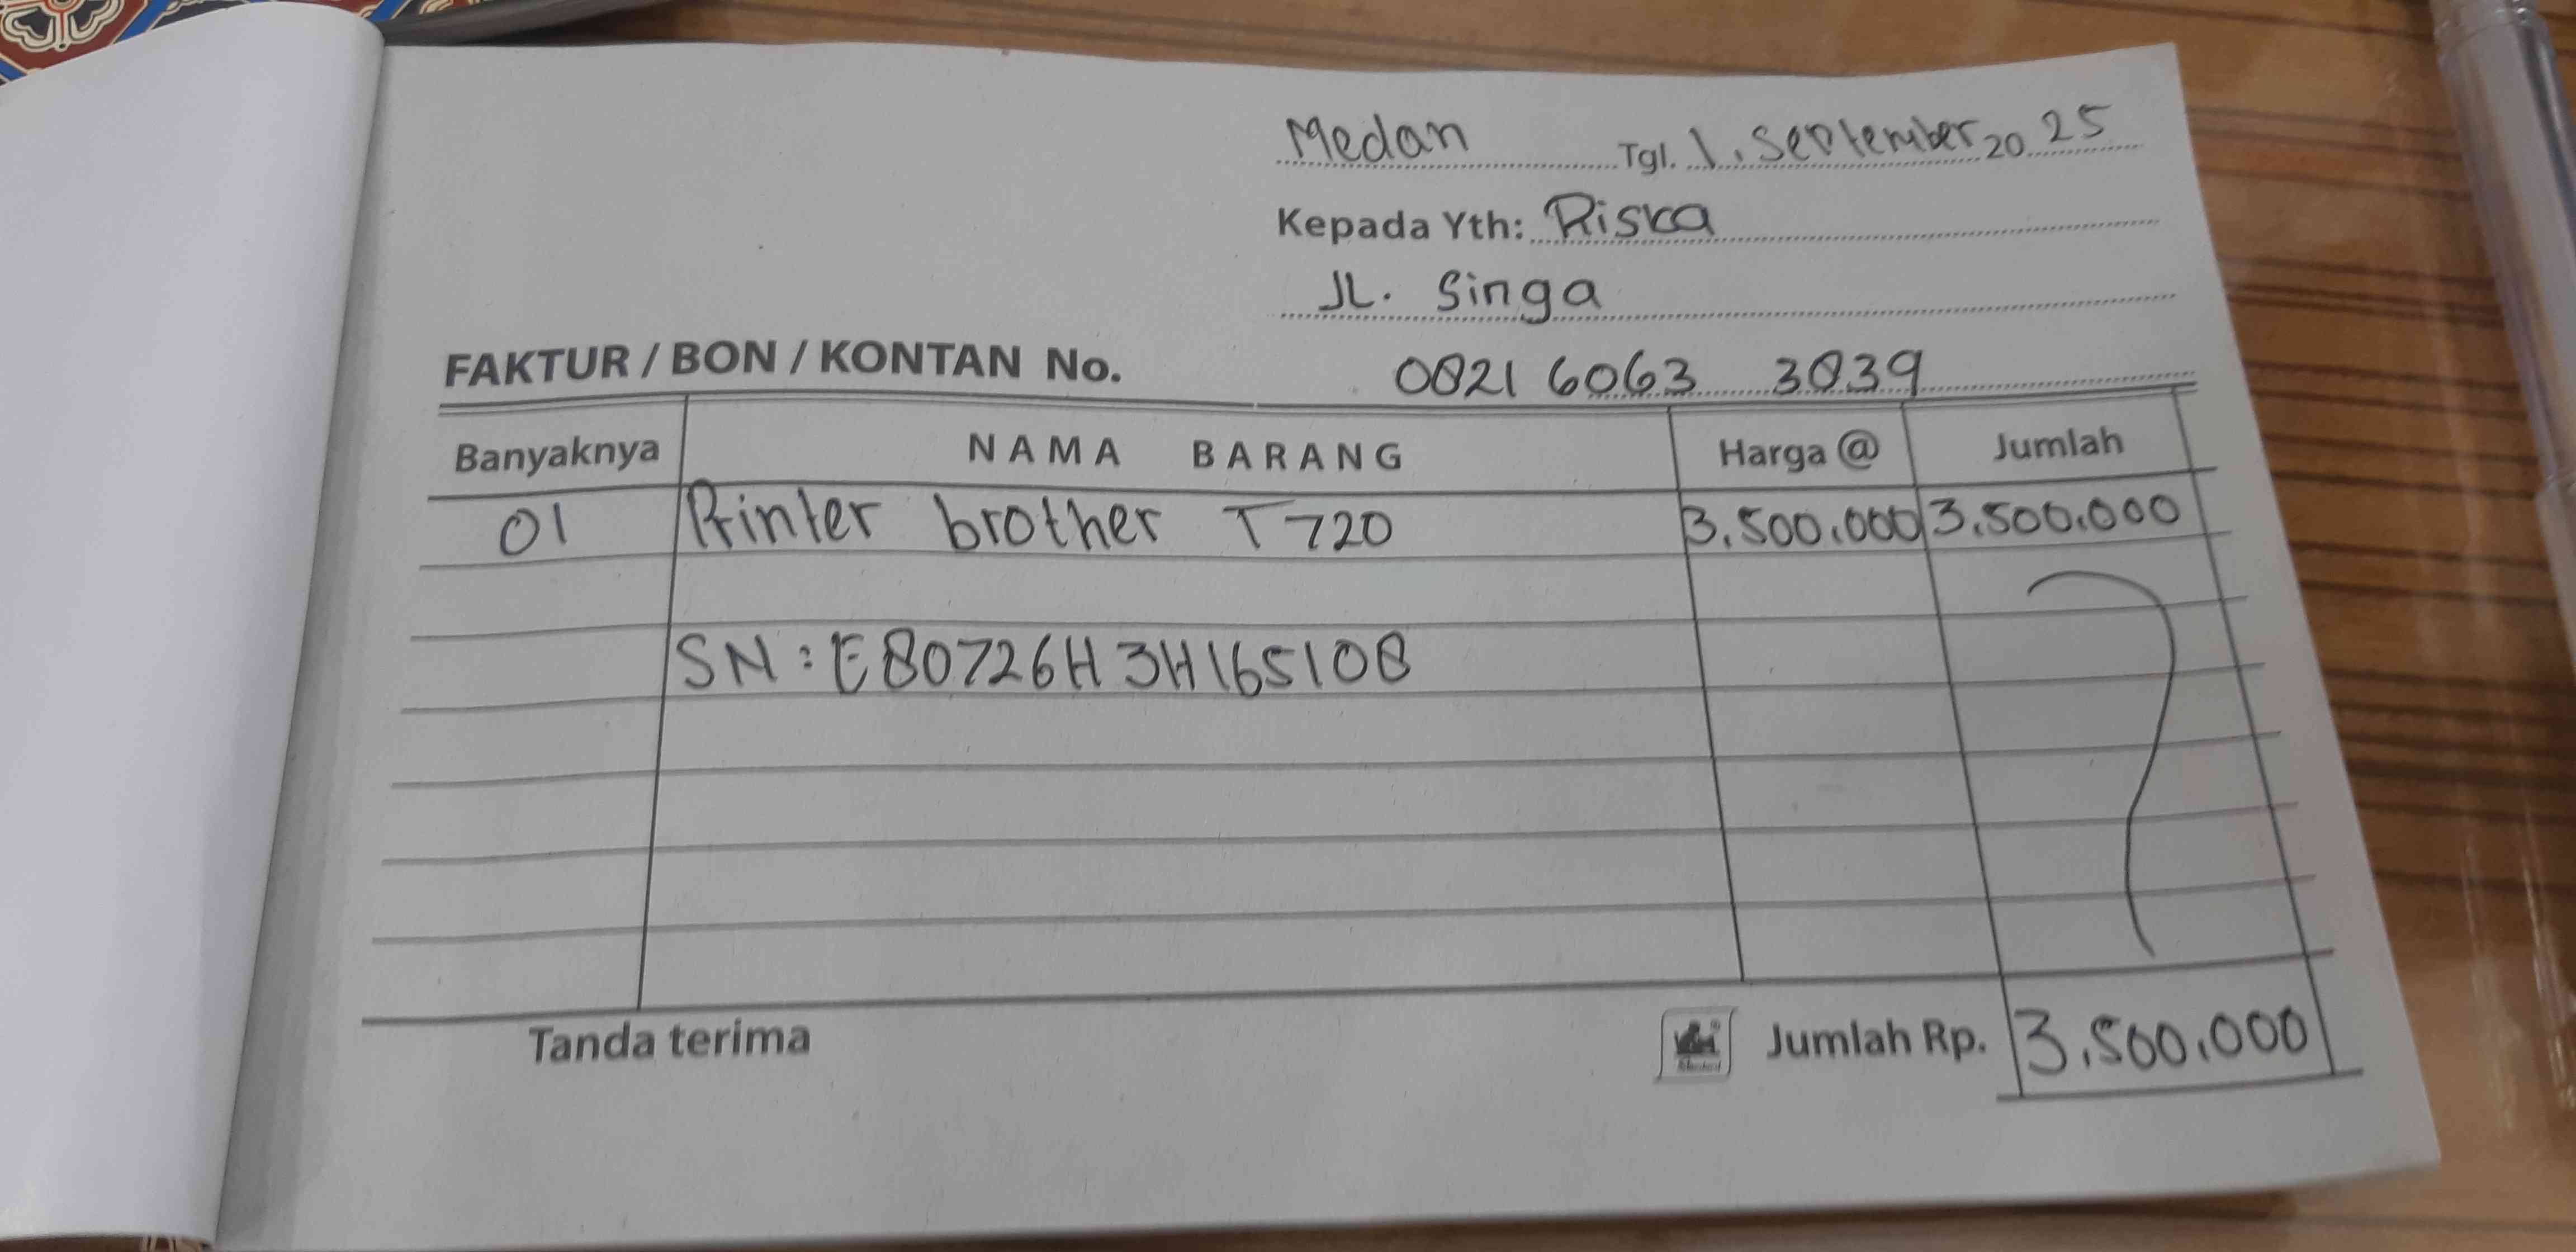 Medan Tgl. 1. September 2025
Kepada Yth: Riska
JL. Singa
FAKTUR / BON / KONTAN No. 0821 6063 3839
Banyaknya NAMA BARANG Harga @ Jumlah
01 Printer brother T720 3.500.000 3.500.000
SN : E80726H3H165108
Tanda terima Jumlah Rp. 3.500.000